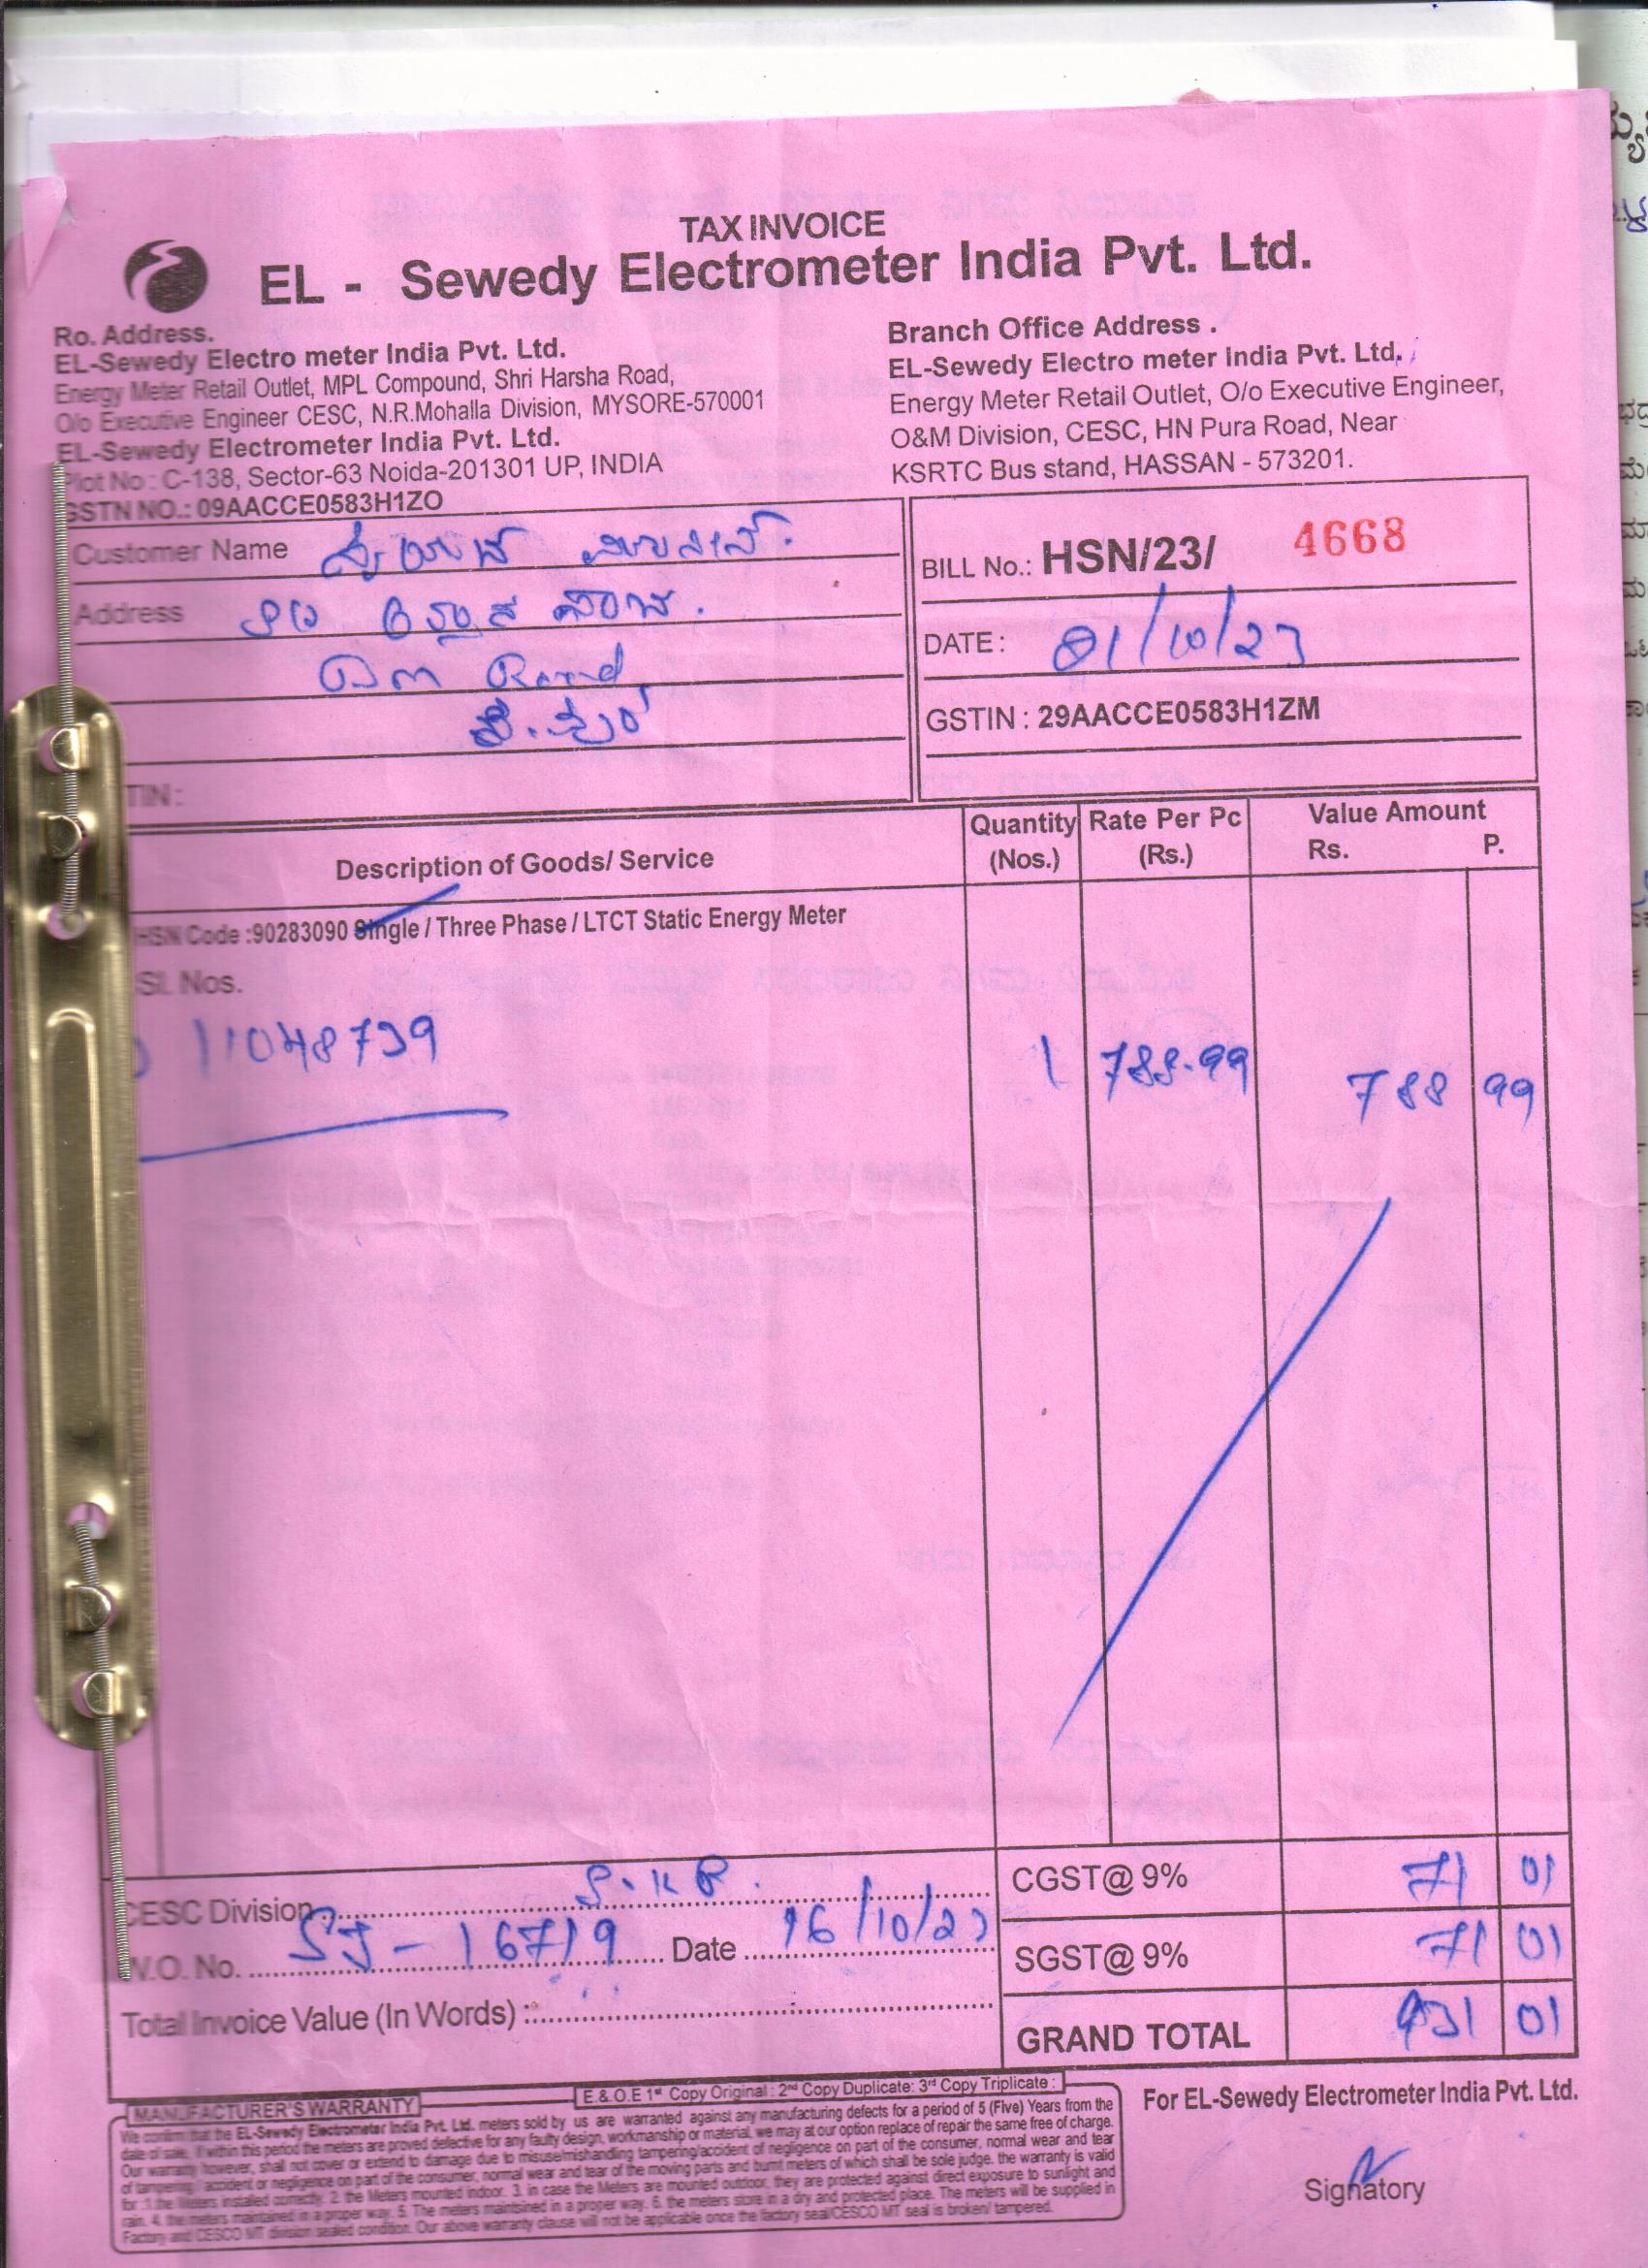 TAX INVOICE
EL - Sewedy Electrometer India Pvt. Ltd.
Ro. Address.
EL-Sewedy Electro meter India Pvt. Ltd.
Energy Meter Retail Outlet, MPL Compound, Shri Harsha Road,
O/o Executive Engineer CESC, N.R.Mohalla Division, MYSORE-570001
EL-Sewedy Electrometer India Pvt. Ltd.
Plot No : C-138, Sector-63 Noida-201301 UP, INDIA
GSTN NO.: 09AACCE0583H1ZO
Branch Office Address .
EL-Sewedy Electro meter India Pvt. Ltd.
Energy Meter Retail Outlet, O/o Executive Engineer,
O&M Division, CESC, HN Pura Road, Near
KSRTC Bus stand, HASSAN - 573201.
Customer Name
Address
Road
TIN :
BILL No.: HSN/23/ 4668
DATE : 01/10/23
GSTIN : 29AACCE0583H1ZM
Description of Goods/ Service
Quantity (Nos.)
Rate Per Pc (Rs.)
Value Amount
Rs. P.
HSN Code :90283090 Single / Three Phase / LTCT Static Energy Meter
SI. Nos.
11048739 1 788.99 788 99
CESC Division S.K.P.
W.O. No. SJ - 16719 Date 16/10/23
Total Invoice Value (In Words) :
CGST@ 9% 71 01
SGST@ 9% 71 01
GRAND TOTAL 931 01
E.& O.E 1st Copy Original : 2nd Copy Duplicate: 3rd Copy Triplicate :
MANUFACTURER'S WARRANTY
We confirm that the EL-Sewedy Electrometer India Pvt. Ltd. meters sold by us are warranted against any manufacturing defects for a period of 5 (Five) Years from the
date of sale. If within this period the meters are proved defective for any faulty design, workmanship or material, we may at our option replace of repair the same free of charge.
Our warranty however, shall not cover or extend to damage due to misuse/mishandling tampering/accident of negligence on part of the consumer, normal wear and tear
of tampering / accident or negligence on part of the consumer, normal wear and tear of the moving parts and burnt meters of which shall be sole judge. the warranty is valid
for :1 the Meters installed correctly. 2. the Meters mounted indoor. 3. in case the Meters are mounted outdoor, they are protected against direct exposure to sunlight and
rain. 4. the meters maintained in a proper way. 5. The meters maintsined in a proper way. 6. the meters store in a dry and protected place. The meters will be supplied in
Factory and CESCO MT division sealed condition. Our above warranty clause will not be applicable once the factory seal/CESCO MT seal is broken/ tampered.
For EL-Sewedy Electrometer India Pvt. Ltd.
Signatory